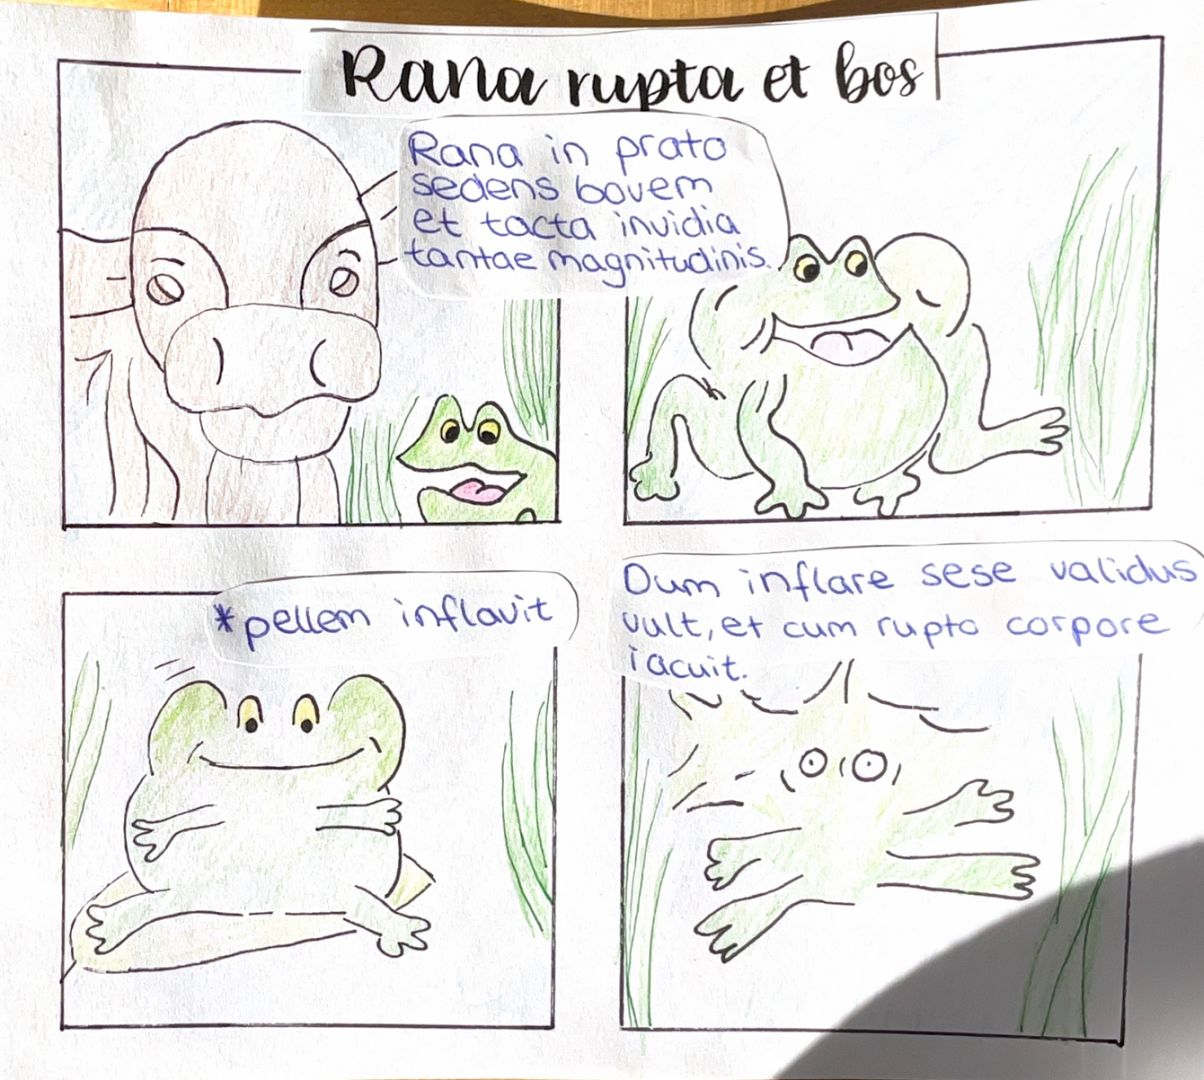 Rana rupta et bos
Rana in prato
sedens bovem
et tacta invidia
tantae magnitudinis.
*pellem inflavit
Dum inflare sese validus
vult, et cum rupto corpore
iacuit.